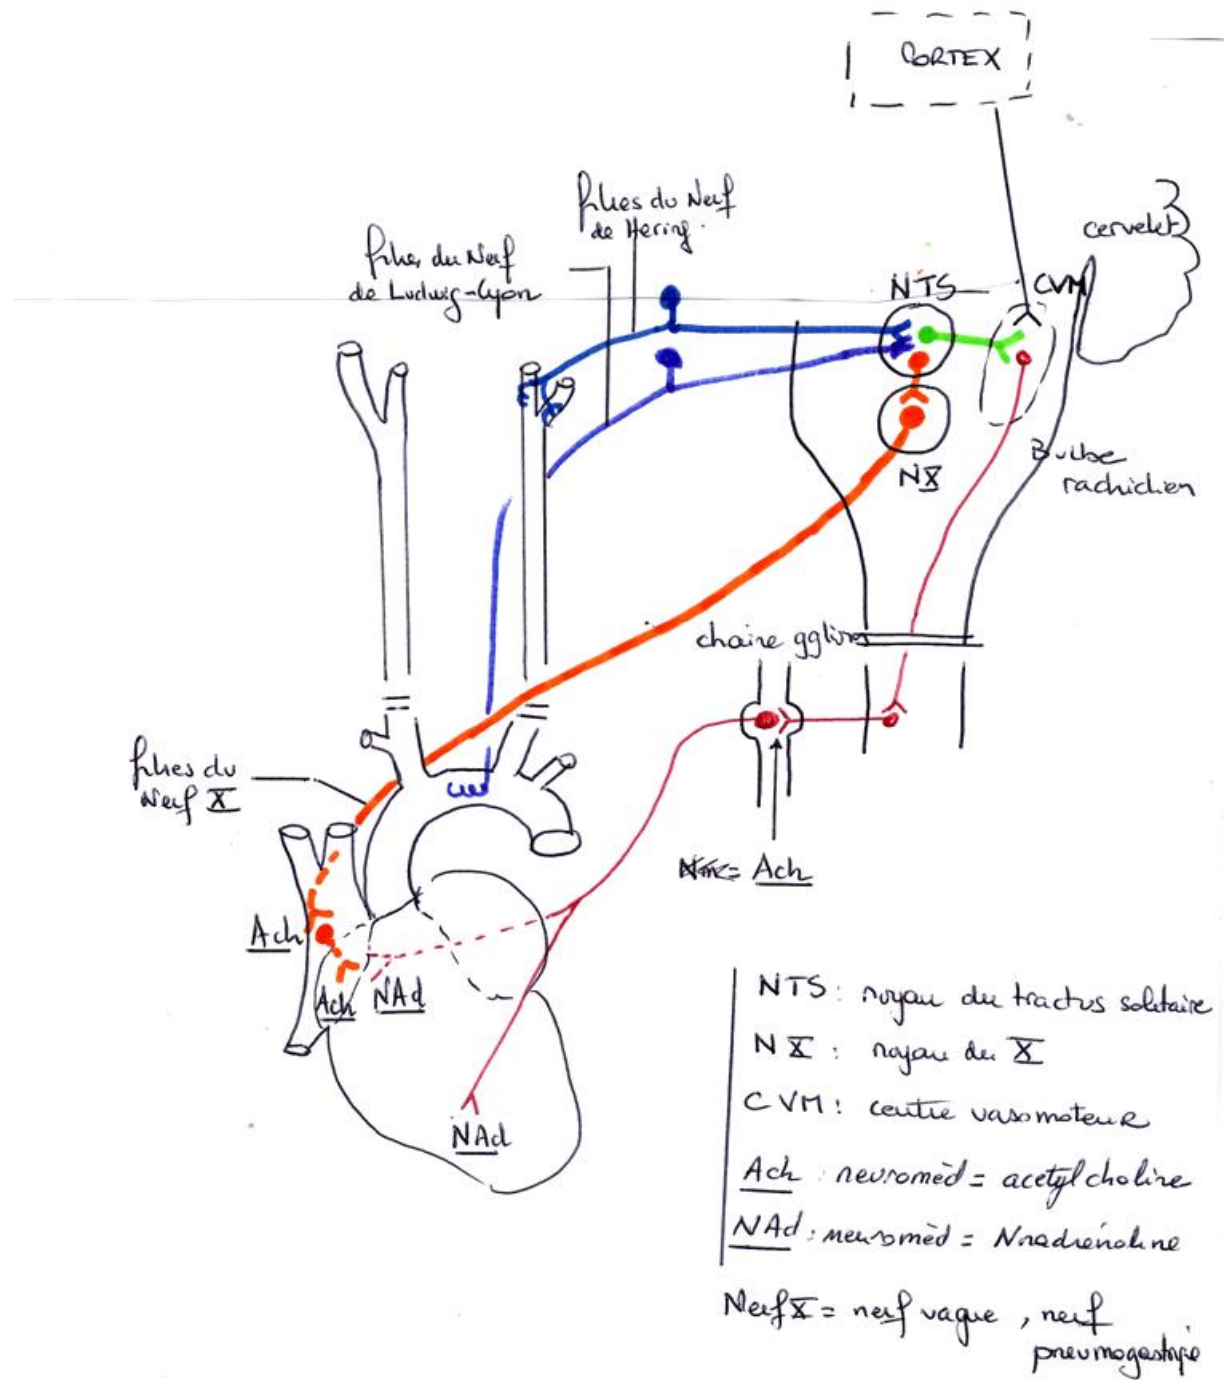 CORTEX
fibres du Nerf
de Hering.
cervelet
fibres du Nerf
de Ludwig-Cyon
NTS
CVM
Bulbe
rachidien
NX
chaine gglion
fibres du
Nerf X
Ach
Ach
Ach
NAd
NAd
NTS: noyau du tractus solitaire
NX: noyau du X
CVM: centre vasomoteur
Ach: neuromèd = acetylcholine
NAd: neuromèd = Noradrénaline
Nerf X = nerf vague, nerf
pneumogastriqe